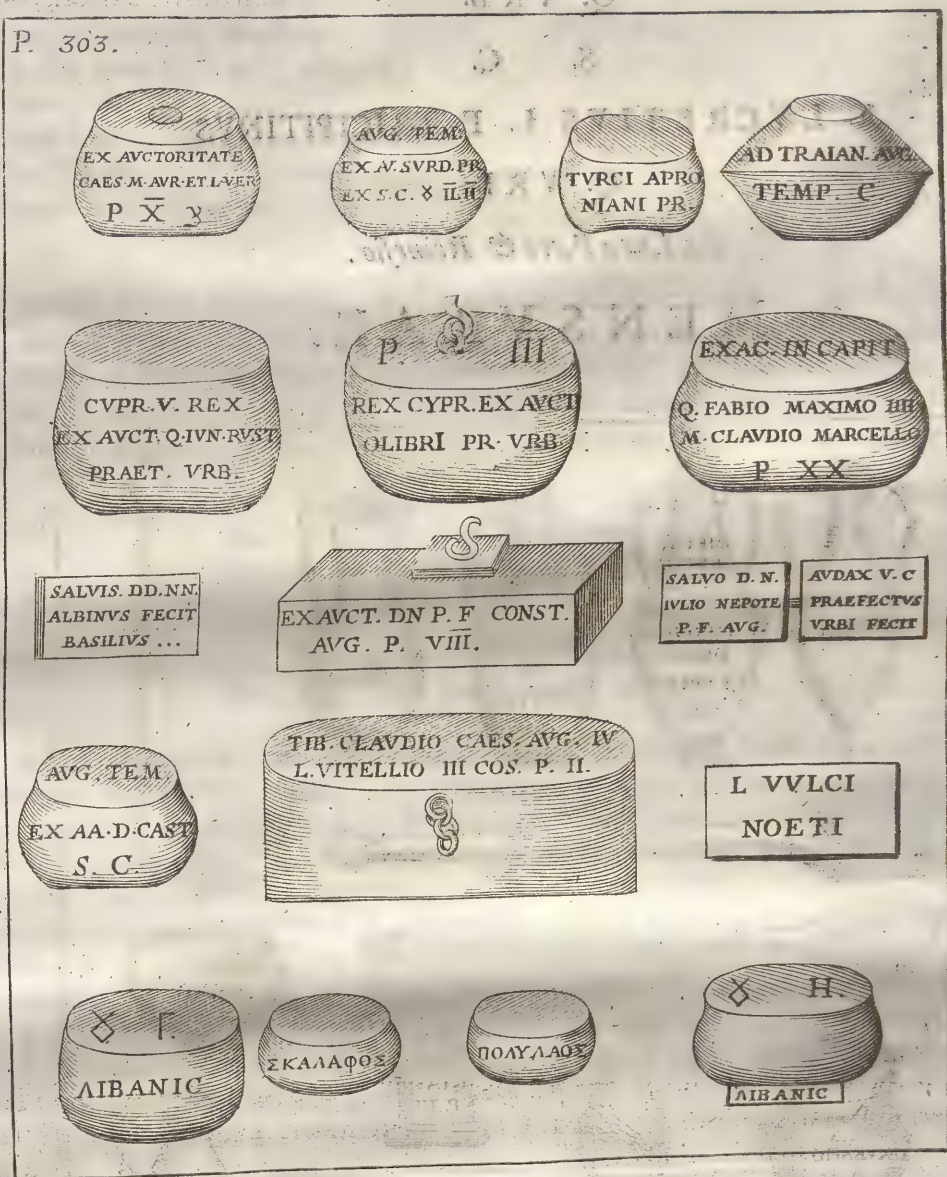 P. 303.
EX AVCTORITATE
CAES·M·AVR·ET·L·VER
P X̅ ४
AVG. TEM.
EX AV. SVRD. PR.
EX S.C. ४ I̅L̅I̅I̅
TVRCI APRO
NIANI PR.
AD TRAIAN. AVG.
TEMP. C.
CVPR. V. REX
EX AVCT. Q. IVN. RVST
PRAET. VRB.
P. III
REX CYPR. EX AVCT
OLIBRI PR. VRB.
EXAC. IN CAPIT
Q. FABIO MAXIMO IIII
M. CLAVDIO MARCELLO
P XX
SALVIS. DD.NN.
ALBINVS FECIT
BASILIVS ...
EX AVCT. DN P. F CONST.
AVG. P. VIII.
SALVO D. N.
IVLIO NEPOTE
P. F. AVG.
AVDAX V. C
PRAEFECTVS
VRBI FECIT
AVG. TEM.
EX AA·D·CAST
S. C.
TIB. CLAVDIO CAES. AVG. IV
L. VITELLIO III COS. P. II.
L VVLCI
NOETI
४ Γ.
ΛΙΒΑΝΙC
ΣΚΑΛΑΦΟΣ
ΠΟΛΥΛΑΟΣ
४ Η.
ΛΙΒΑΝΙC